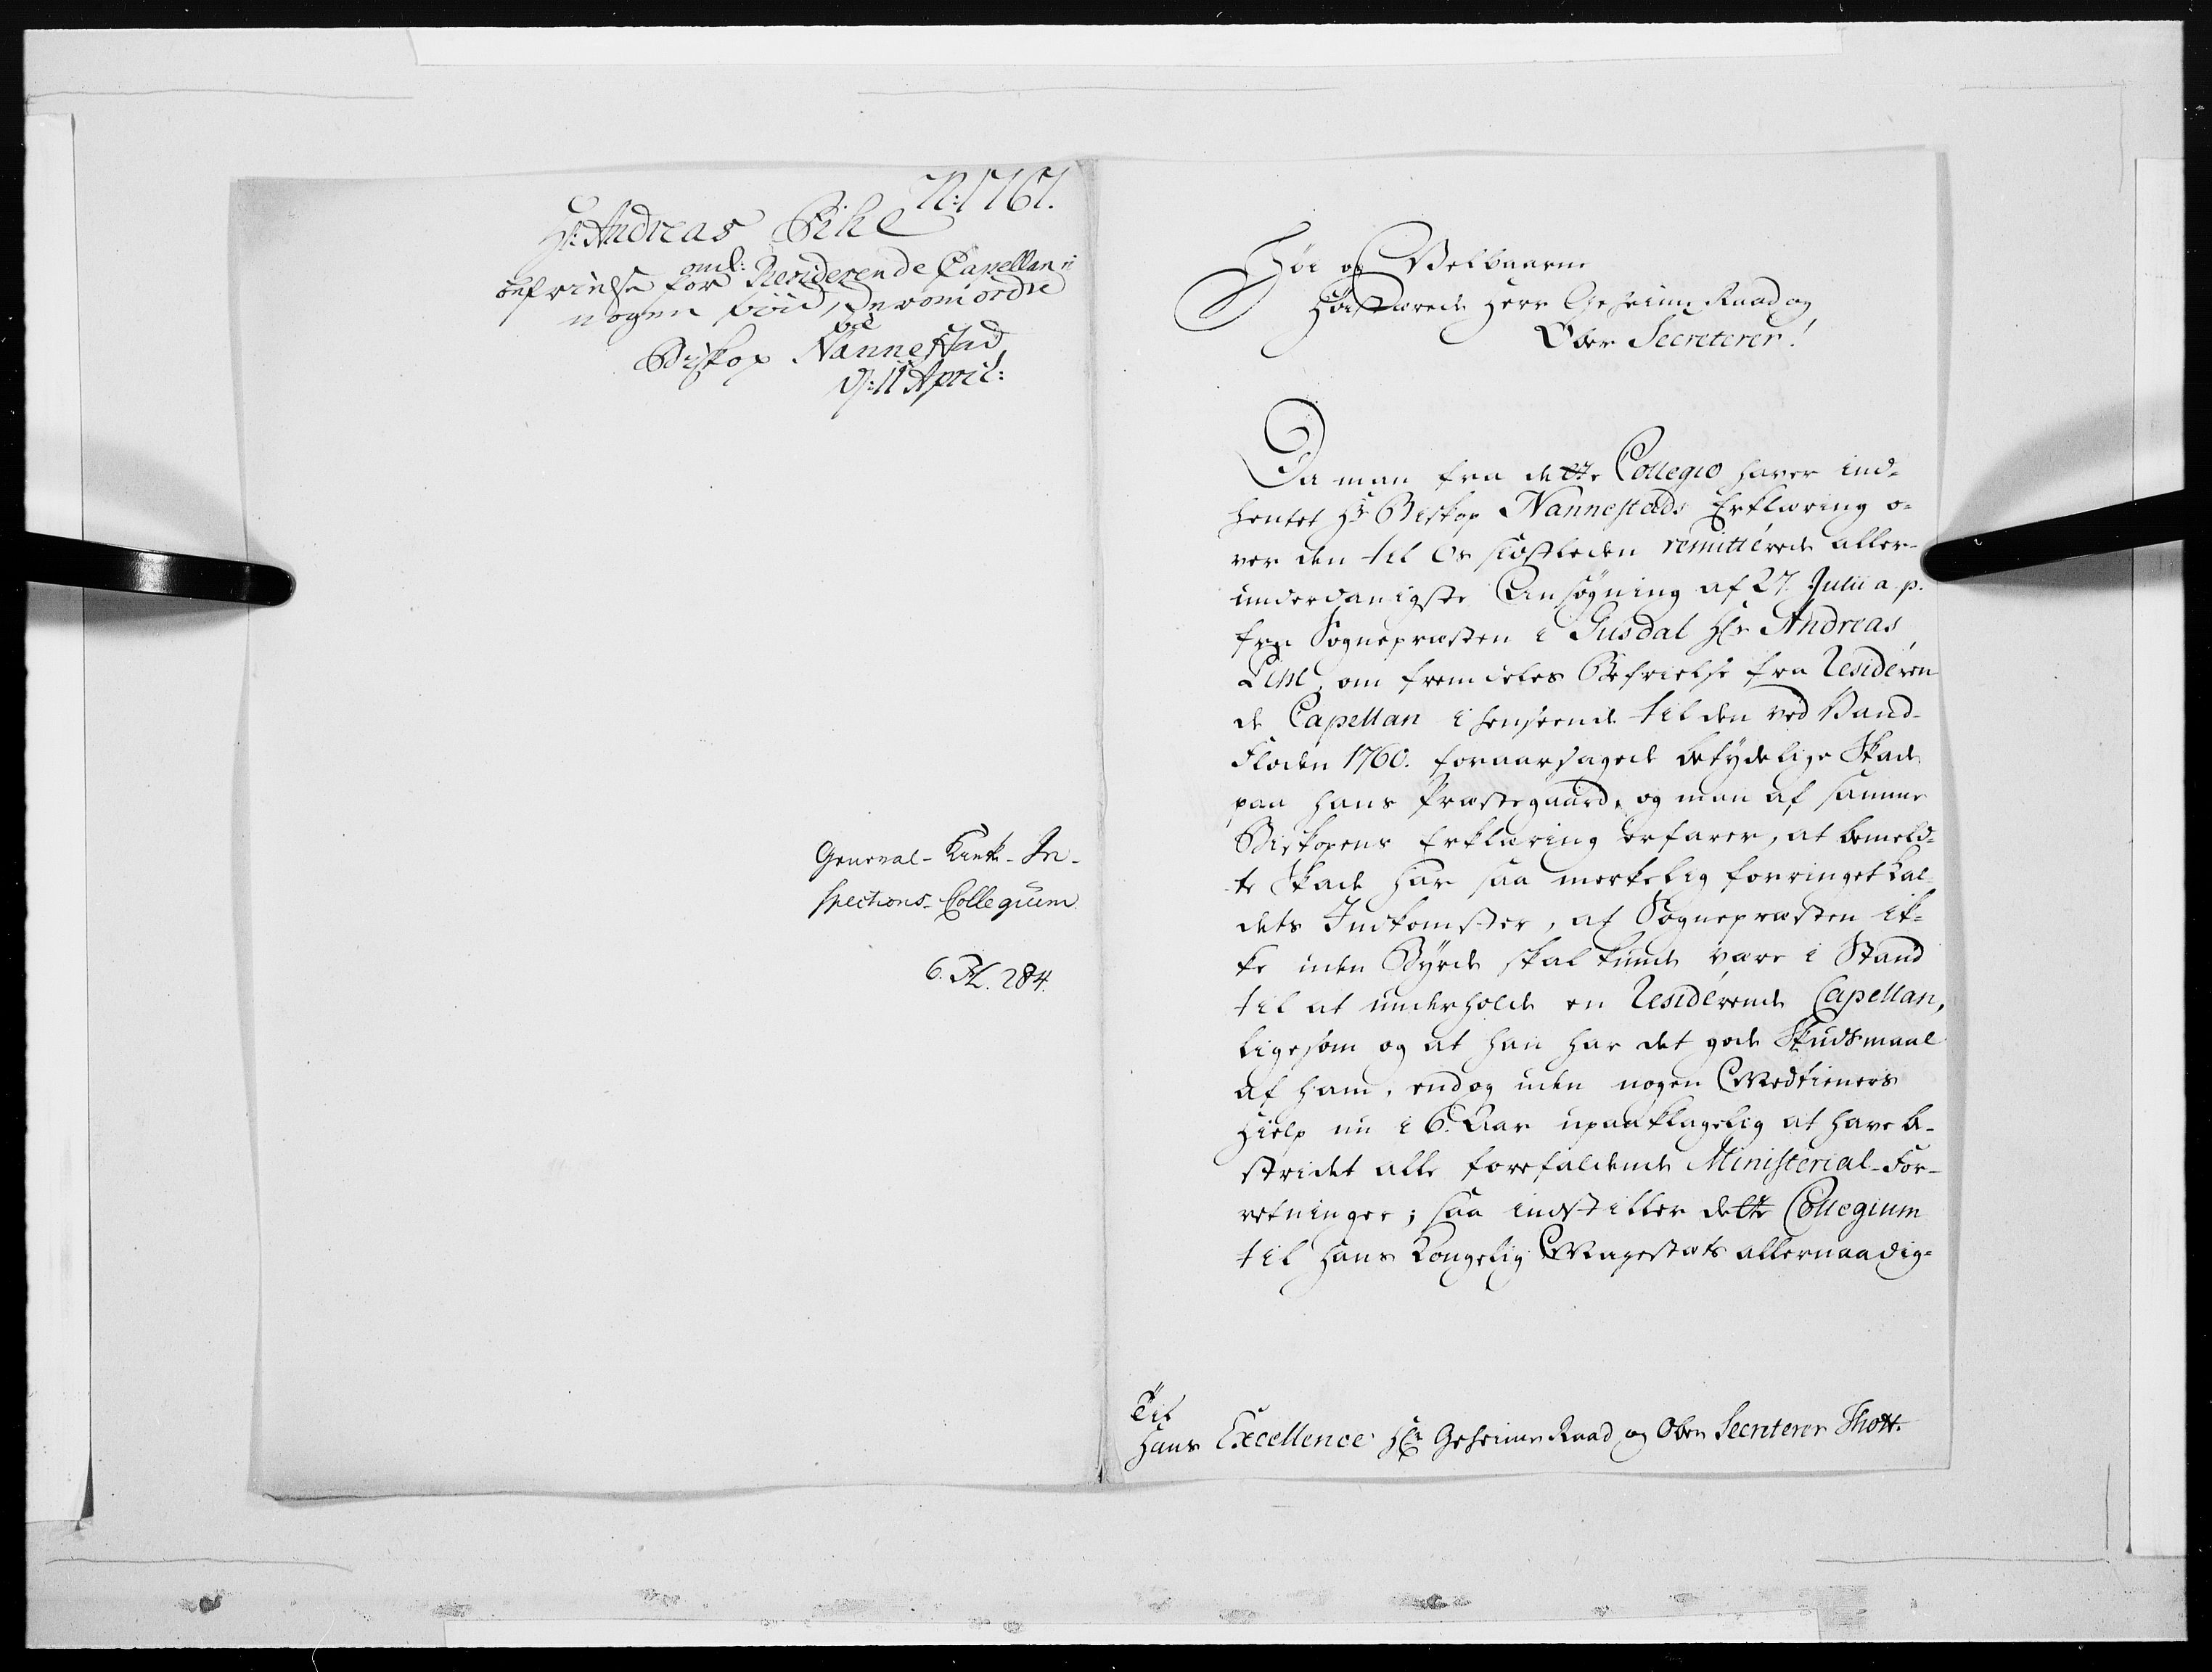 N: 1767.
Hr: Andreas Pihl
befrielse for Residerende Capellan
omd:
nogen
Biskop Nannestad
d: 11 April:
General-Kirke-In-
spections-Collegium
6. 284.
Høi og Velbaarne
Høistærede Herr Geheime Raad og
Ober Secreterer!
Da man fra dette Collegio haver ind-
hentet Hr Biskop Nannestads Erklæring o-
ver den til Os sidstleden remitterede aller-
underdanigste Ansøgning af 27. Julii a. p.
fra Sognepræsten i Gusdal Hr Andreas
Pihl, om fremdeles Befrielse fra Residéren
de Capellan i henseende til den ved Vand-
Floden 1760. foraarsagede betydelige Skade
paa hans Præstegaard, og man af samme
Biskopens Erklæring erfarer, at bemeld-
te Skade har saa merkelig forringet Kal-
dets Indkomster, at Sognepræsten ik-
ke uden Byrde skal kunde være i Stand
til at underholde en Residérende Capellan,
ligesom og at han har det gode Skudsmaal
af ham, endog uden nogen Medtieners
Hielp nu i 6. Aar upaaklagelig at have be-
stridet alle forefaldende Ministerial-For-
retninger; saa indstiller dette Collegium
til Hans Kongelig Mayestæts allernaadig-
Til
Hans Excellence Hr Geheime Raad og Ober Secreterer Thott.